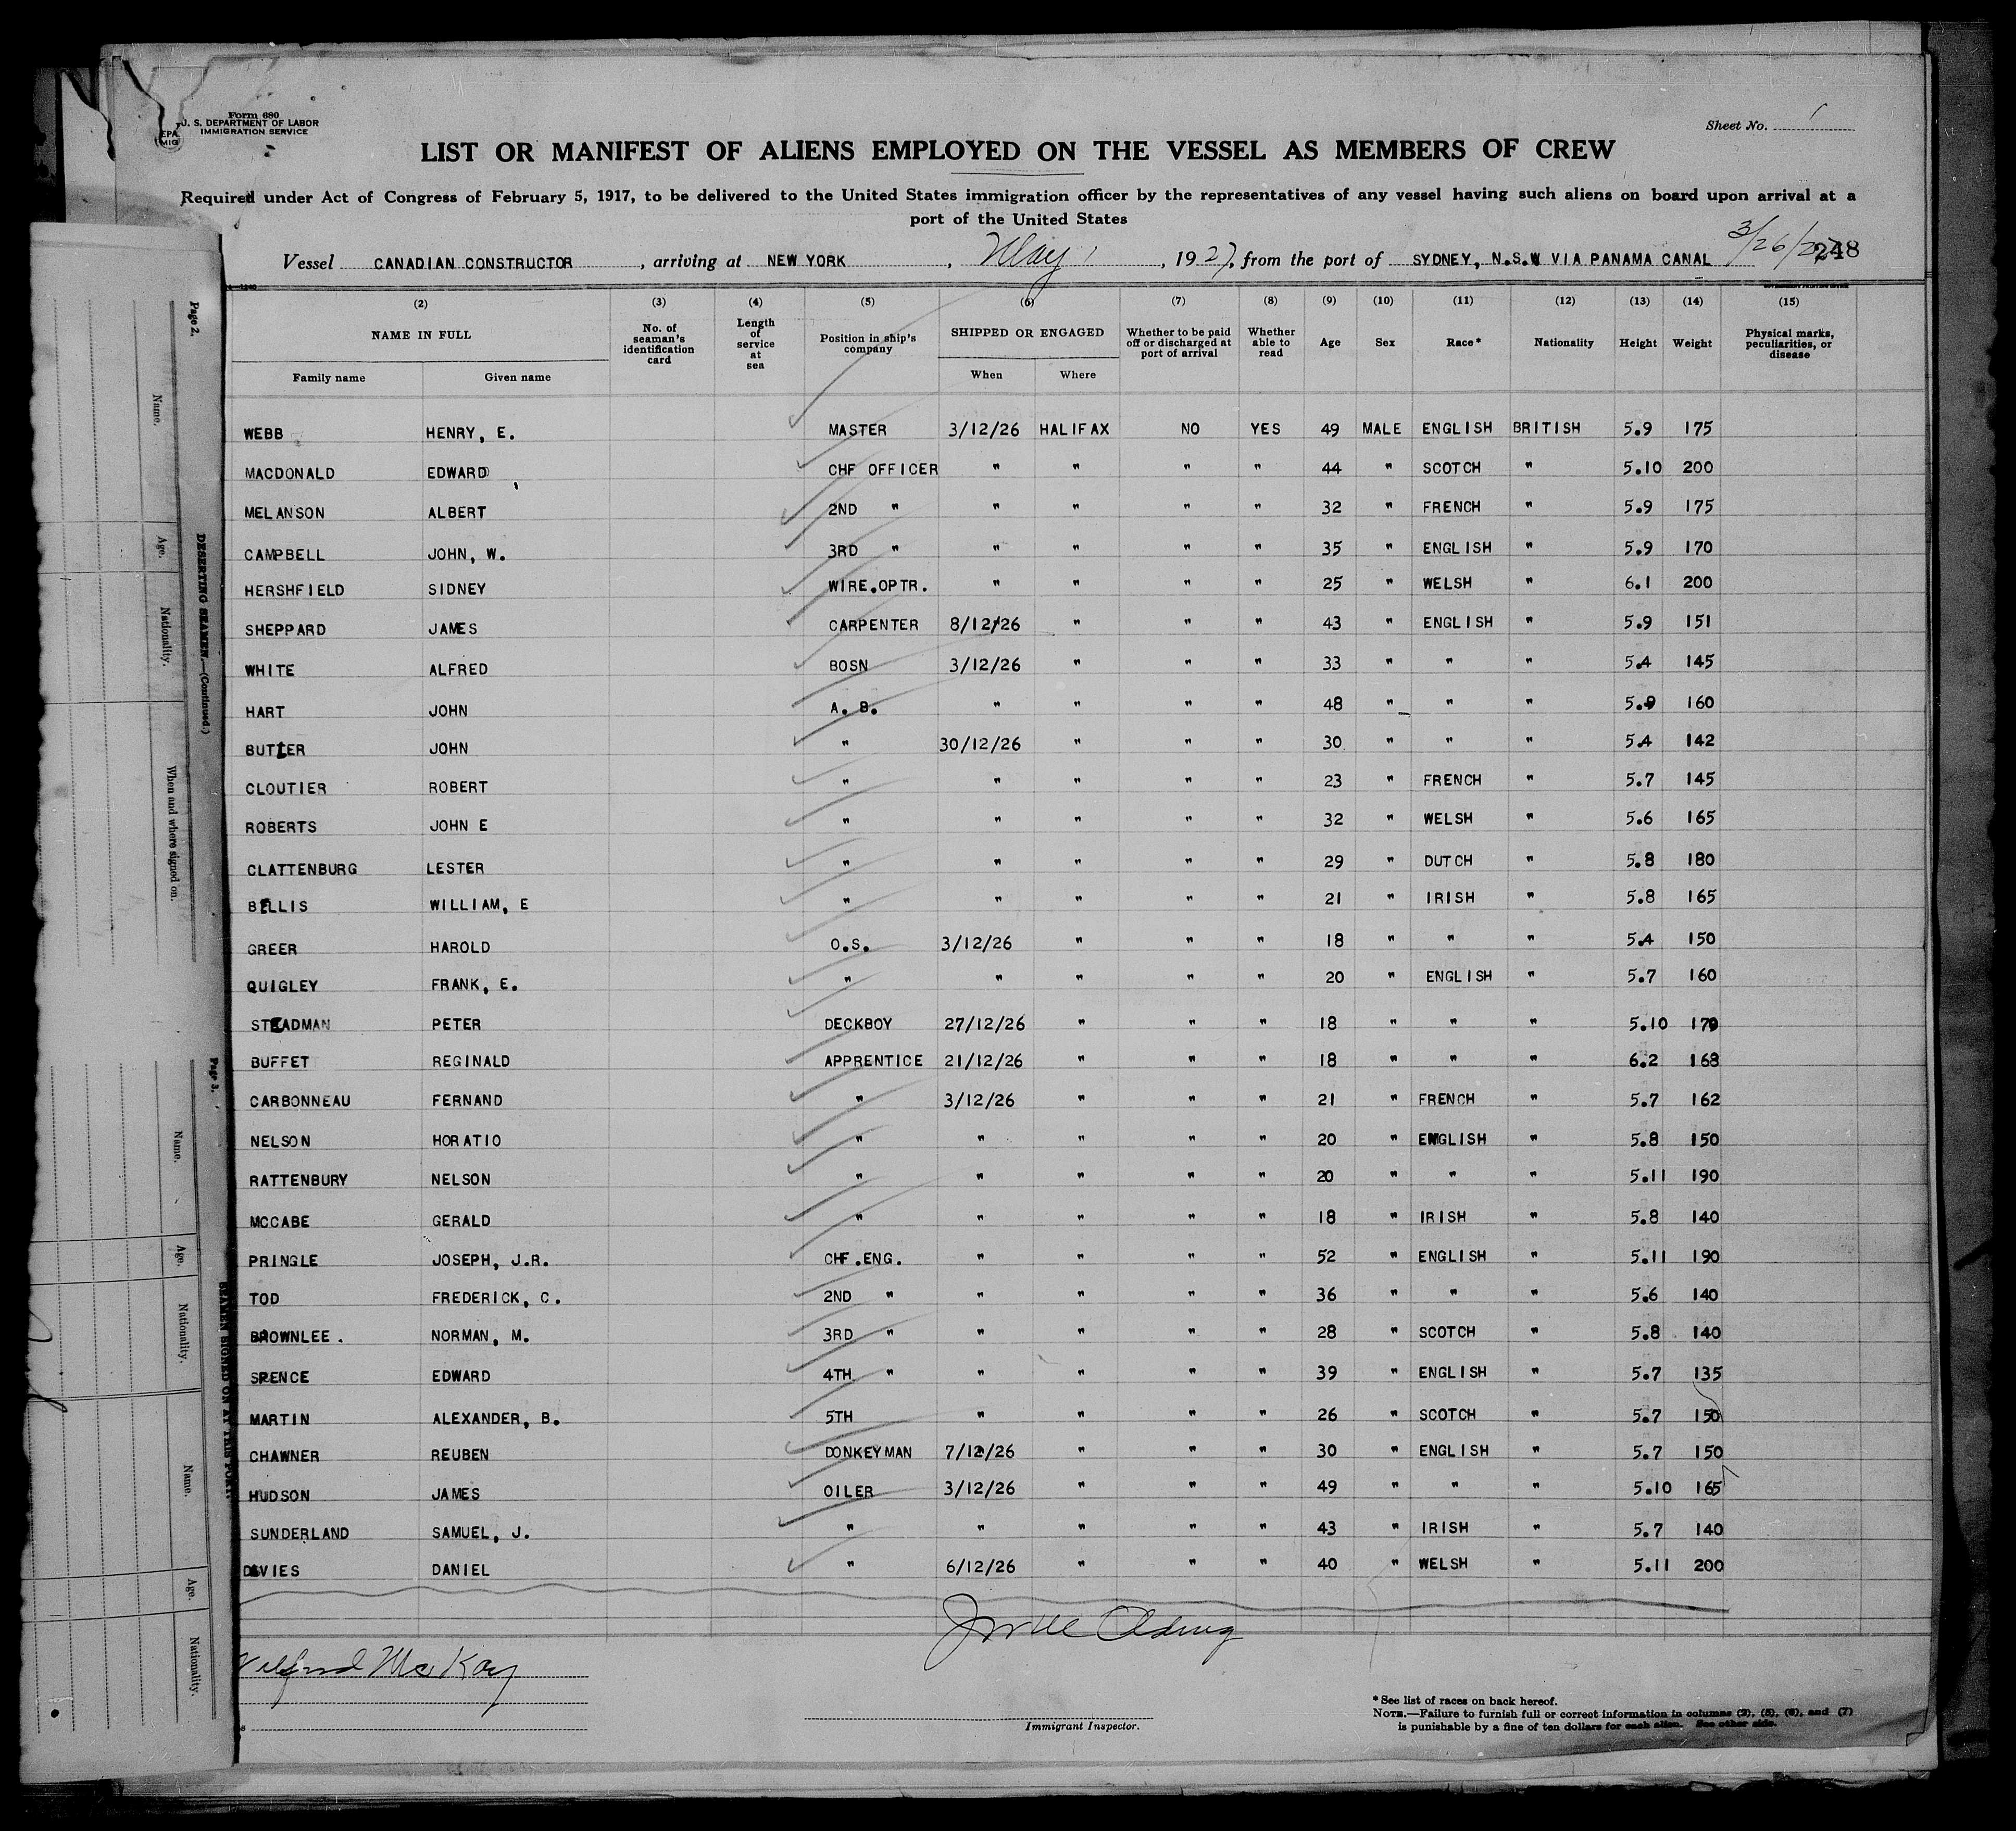 Form 680
U. S. DEPARTMENT OF LABOR
IMMIGRATION SERVICE
Sheet No. 1
LIST OR MANIFEST OF ALIENS EMPLOYED ON THE VESSEL AS MEMBERS OF CREW
Required under Act of Congress of February 5, 1917, to be delivered to the United States immigration officer by the representatives of any vessel having such aliens on board upon arrival at a
port of the United States
3/26/27
248
Vessel CANADIAN CONSTRUCTOR, arriving at NEW YORK, May 1, 1927, from the port of SYDNEY, N.S.W VIA PANAMA CANAL
(2) (3) (4) (5) (6) (7) (8) (9) (10) (11) (12) (13) (14) (15)
NAME IN FULL No. of seaman's identification card Length of service at sea Position in ship's company SHIPPED OR ENGAGED Whether to be paid off or discharged at port of arrival Whether able to read Age Sex Race* Nationality Height Weight Physical marks, peculiarities, or disease
Family name Given name When Where
WEBB HENRY, E. MASTER 3/12/26 HALIFAX NO YES 49 MALE ENGLISH BRITISH 5.9 175
MACDONALD EDWARD CHF OFFICER " " " " 44 " SCOTCH " 5.10 200
MELANSON ALBERT 2ND " " " " " 32 " FRENCH " 5.9 175
CAMPBELL JOHN, W. 3RD " " " " " 35 " ENGLISH " 5.9 170
HERSHFIELD SIDNEY WIRE.OPTR. " " " " 25 " WELSH " 6.1 200
SHEPPARD JAMES CARPENTER 8/12/26 " " " 43 " ENGLISH " 5.9 151
WHITE ALFRED BOSN 3/12/26 " " " 33 " " " 5.4 145
HART JOHN A. B. " " " " 48 " " " 5.9 160
BUTLER JOHN " 30/12/26 " " " 30 " " " 5.4 142
CLOUTIER ROBERT " " " " " 23 " FRENCH " 5.7 145
ROBERTS JOHN E " " " " " 32 " WELSH " 5.6 165
CLATTENBURG LESTER " " " " " 29 " DUTCH " 5.8 180
BELLIS WILLIAM, E " " " " " 21 " IRISH " 5.8 165
GREER HAROLD O.S. 3/12/26 " " " 18 " " " 5.4 150
QUIGLEY FRANK, E. " " " " " 20 " ENGLISH " 5.7 160
STEADMAN PETER DECKBOY 27/12/26 " " " 18 " " " 5.10 170
BUFFET REGINALD APPRENTICE 21/12/26 " " " 18 " " " 6.2 168
CARBONNEAU FERNAND " 3/12/26 " " " 21 " FRENCH " 5.7 162
NELSON HORATIO " " " " " 20 " ENGLISH " 5.8 150
RATTENBURY NELSON " " " " " 20 " " " 5.11 190
MCCABE GERALD " " " " " 18 " IRISH " 5.8 140
PRINGLE JOSEPH, J.R. CHF.ENG. " " " " 52 " ENGLISH " 5.11 190
TOD FREDERICK, C. 2ND " " " " " 36 " " " 5.6 140
BROWNLEE. NORMAN, M. 3RD " " " " " 28 " SCOTCH " 5.8 140
SPENCE EDWARD 4TH " " " " " 39 " ENGLISH " 5.7 135
MARTIN ALEXANDER, B. 5TH " " " " 26 " SCOTCH " 5.7 150
CHAWNER REUBEN DONKEYMAN 7/12/26 " " " 30 " ENGLISH " 5.7 150
HUDSON JAMES OILER 3/12/26 " " " 49 " " " 5.10 165
SUNDERLAND SAMUEL, J. " " " " " 43 " IRISH " 5.7 140
DAVIES DANIEL " 6/12/26 " " " 40 " WELSH " 5.11 200
McKay
Immigrant Inspector.
*See list of races on back hereof.
NOTE.—Failure to furnish full or correct information in columns (2), (5), (6), and (7)
is punishable by a fine of ten dollars for each alien. See other side.
Page 2.
DESERTING SEAMEN.—(Continued.)
Name.
Age.
Nationality.
When and where signed on.
Page 3.
Name.
Age.
Nationality.
Name.
Age.
Nationality.